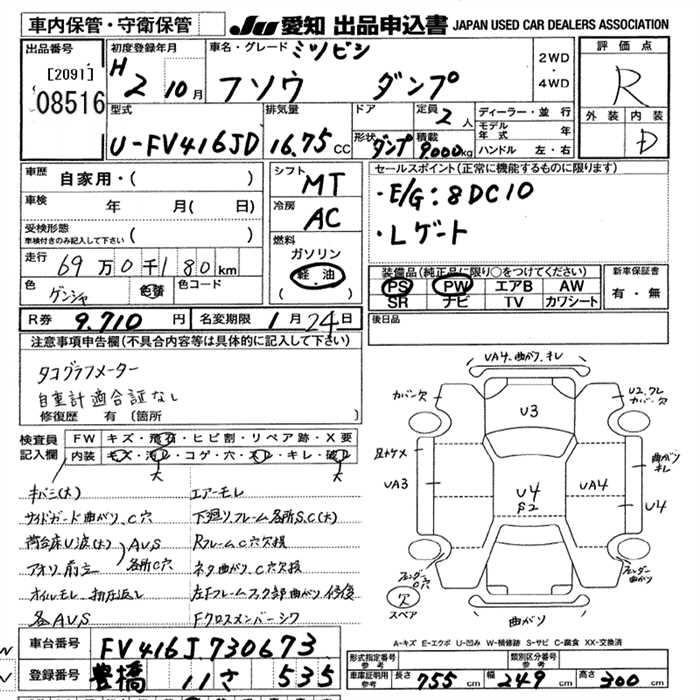 車内保管・守衛保管
JU 愛知 出品申込書 JAPAN USED CAR DEALERS ASSOCIATION
出品番号
[2091]
08516
初度登録年月
H 2 10月
車名・グレード ミツビシ
フソウ ダンプ
2WD
・
4WD
評価点
R
外装 内装
D
型式
U-FV416JD
排気量
16.75 CC
ドア
形状 ダンプ
定員 2 人
積載 9000kg
ディーラー・並行
モデル年式 年
ハンドル 左・右
車歴 自家用・( )
車検 年 月( 日)
受検形態 ( )
車検付きのみ記入して下さい
走行 69万0千180km
色 ゲンシャ 色替 色コード
シフト
MT
冷房
AC
燃料
ガソリン
軽油
( )
セールスポイント(正常に機能するものに限ります)
・E/G:8DC10
・Lゲート
装備品(純正品に限り○をつけてください)
PS PW エアB AW
SR ナビ TV カワシート
新車保証書
有・無
R券 9.710 円 名変期限 1月24日
後日品
注意事項申告欄(不具合内容等は具体的に記入して下さい)
タコグラフメーター
自重計適合証なし
修復歴 有 〔箇所
検査員
記入欄
FW キズ・飛石・ヒビ割・リペア跡・X要
内装 キズ・汚レ・コゲ・穴・スレ・キレ・破レ
大 大
キバミ(大) エアーモレ
サイドガード曲がり、C穴 下廻リ、フレーム各所S,C(大)
荷台床U波(大) A,U,S Rフレーム C穴欠損
アオリ、前立 各所C穴 ネタ曲がり、C穴欠損
オイルモレ
各A,U,S Fクロスメンバーシワ
VA4、曲がり、キレ
カバー欠
U2、ワレ
カバー欠
U3
VA3
U4
S2
VA4
曲がり
キレ
U4
フェンダー
C穴
フェンダー
曲がり
欠
スペア
曲がり
A-キズ E-エクボ U-凹み W-補修跡 S-サビ C-腐食 XX-交換済
車台番号 FV416J.730673
登録番号 豊橋 11さ 535
形式指定番号
参考
類別区分番号
参考
車庫証明用
参考
長さ 755 cm 幅 249 cm 高さ 300 cm